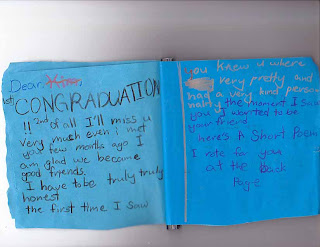 Dear,
1st
CONGRADUATION
!! 2nd of all I'll miss u
very much even i met
you few months ago I
am glad we became
good friends.
I have to be truly truly
honest
the first time I saw
you knew u where
very pretty and
had a very kind person
nality the moment I saw
you I wanted to be
your friend
here's A Short Poem
I wote for you
at the back
Page